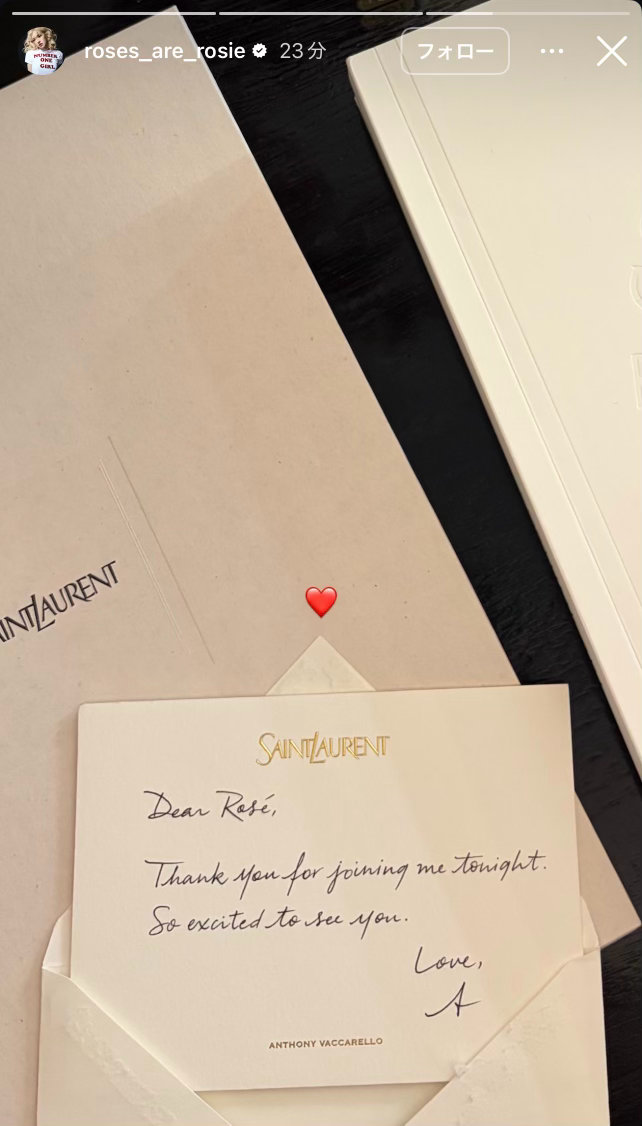 roses_are_rosie 23分
フォロー
NUMBER
ONE
GIRL
SAINT LAURENT
SAINT LAURENT
Dear Rosé,
Thank you for joining me tonight.
So excited to see you.
Love,
A
ANTHONY VACCARELLO